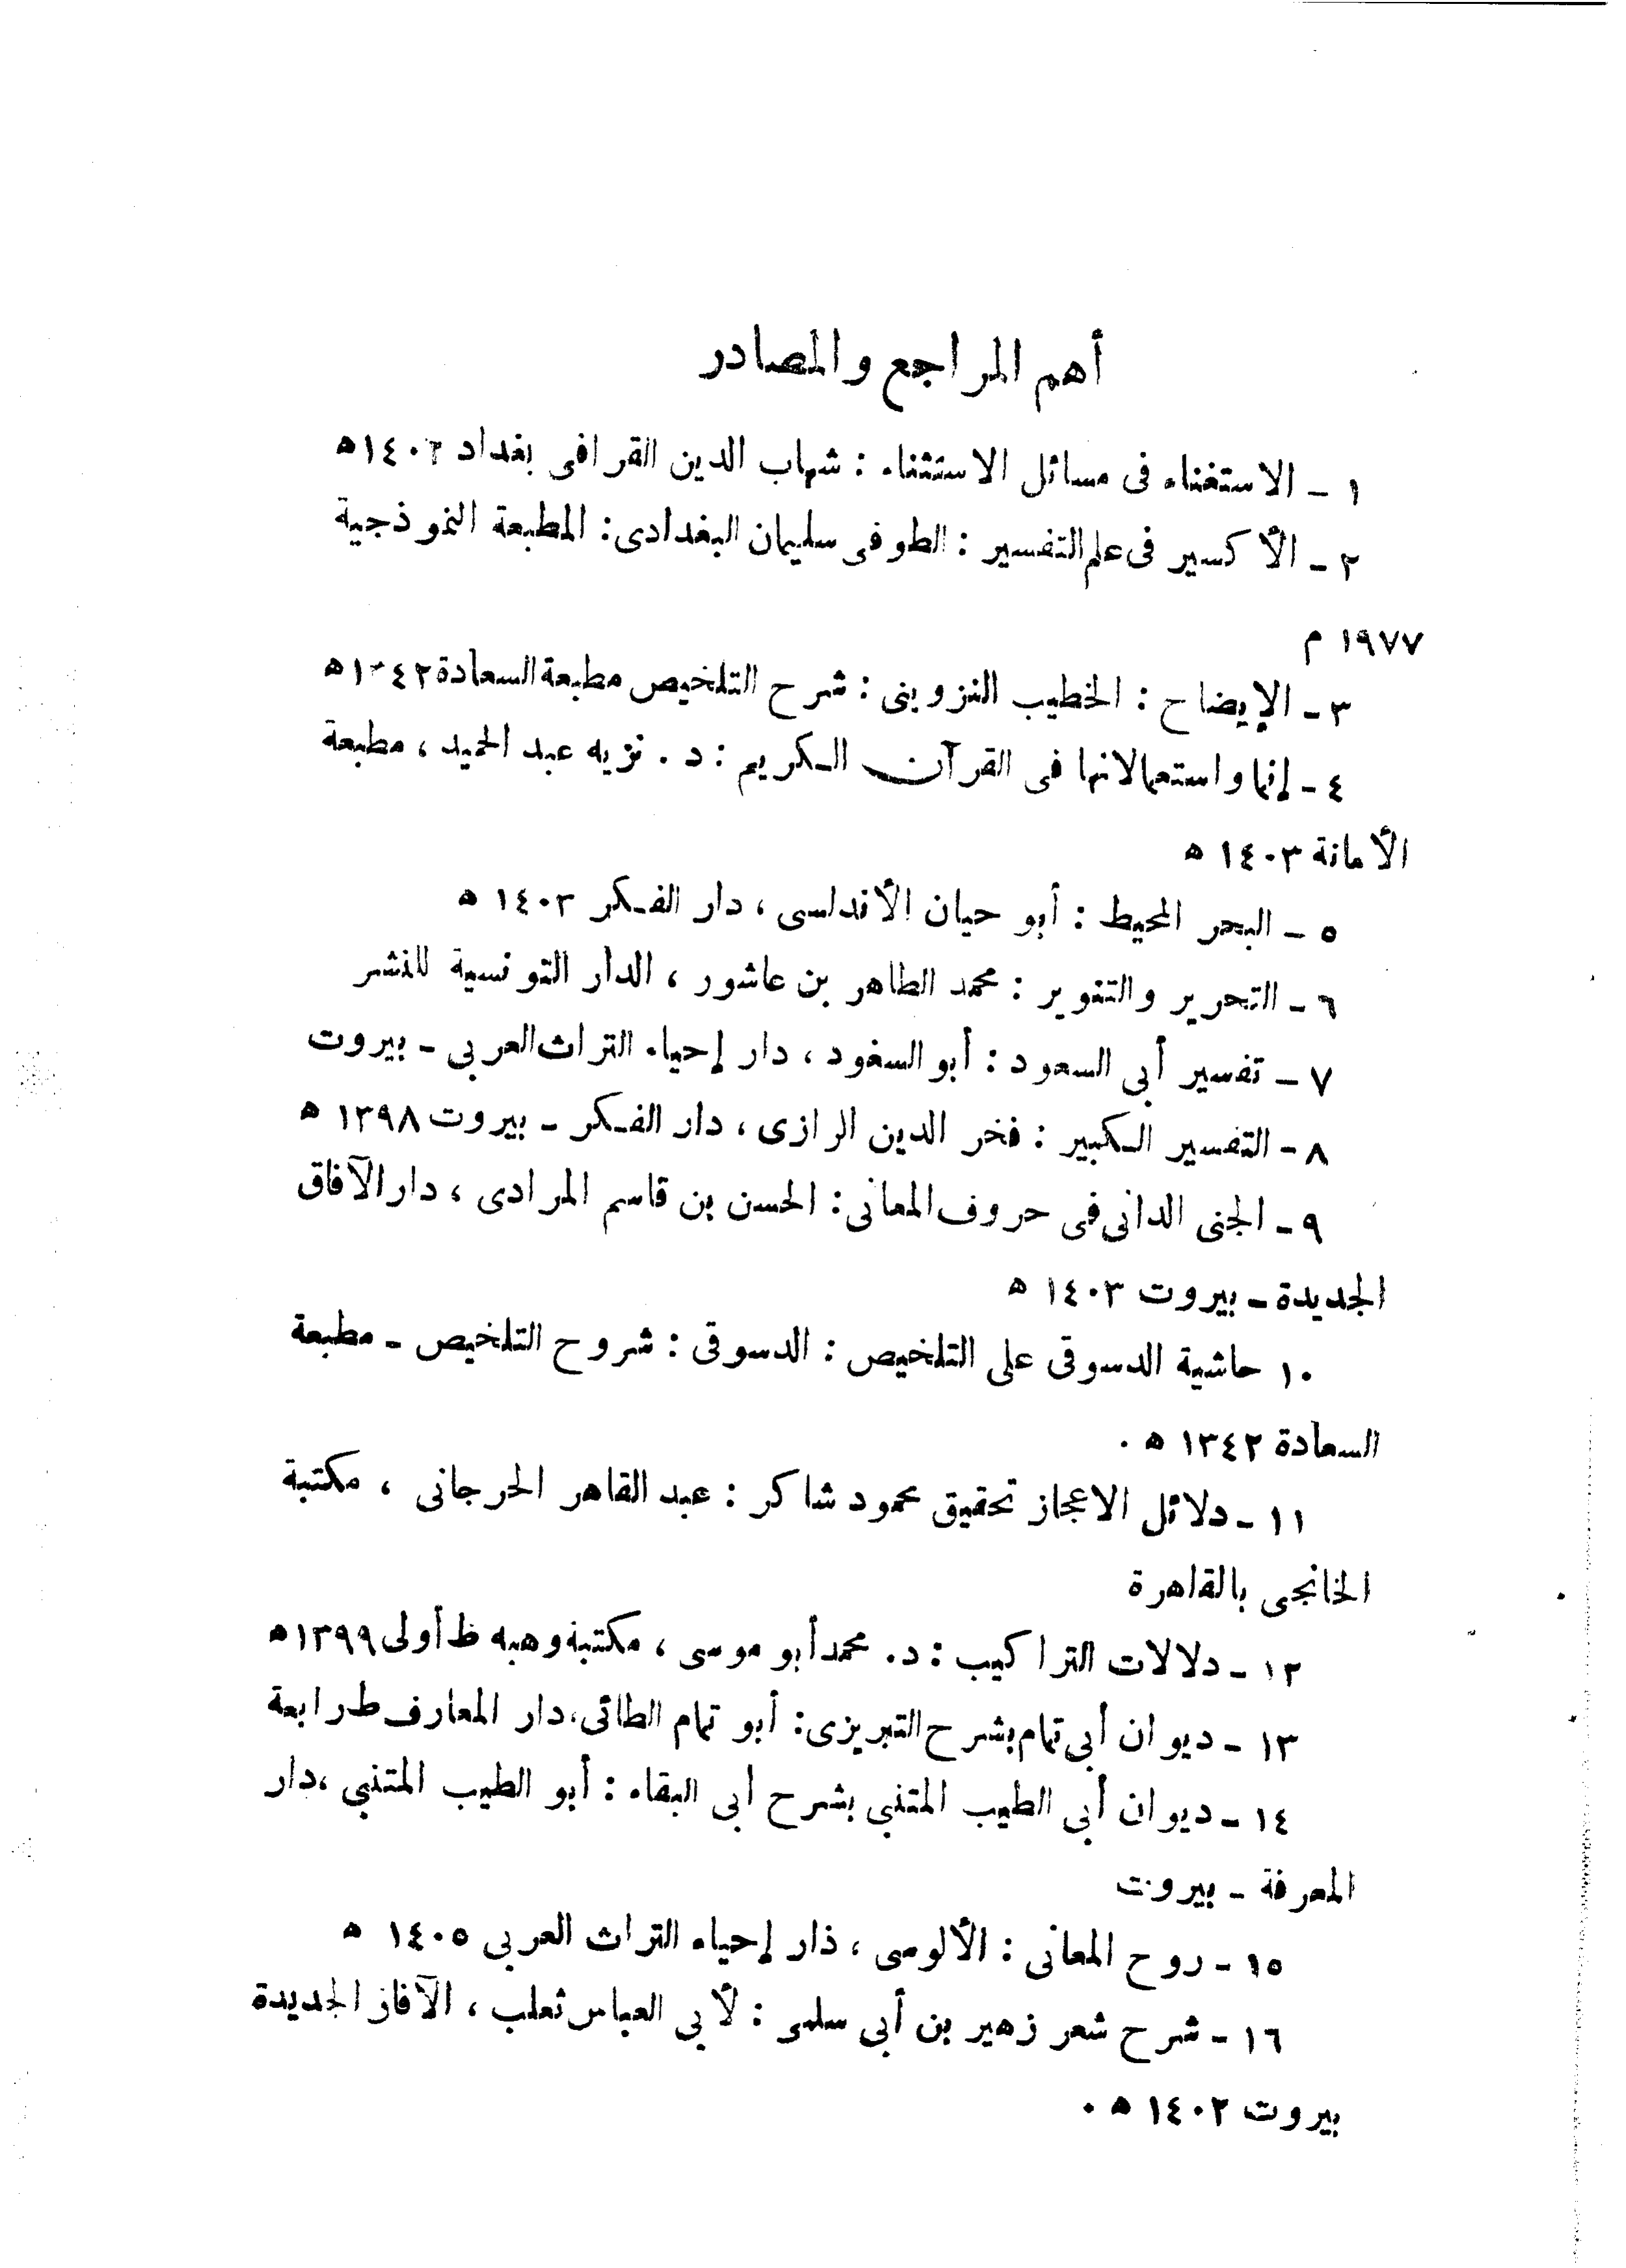 أهم المراجع والمصادر
١ - الاستغناء فى مسائل الاستثناء : شهاب الدين القرافى بغداد ١٤٠٢ه
٢ - الأكسير فى علم التفسير : الطوفى سليمان البغدادى : المطبعة النموذجية
١٩٧٧ م
٣ - الإيضاح : الخطيب القزوينى : شرح التلخيص مطبعة السعادة ١٣٤٢ه
٤ - إنما واستعمالاتها فى القرآن الكريم : د . نزيه عبد الحميد ، مطبعة
الأمانة ١٤٠٣ ه
٥ - البحر المحيط : أبو حيان الأندلسى ، دار الفكر ١٤٠٣ ه
٦ - التحرير والتنوير : محمد الطاهر بن عاشور ، الدار التونسية للنشر
٧ - تفسير أبى السعود : أبو السغود ، دار إحياء التراث العربى - بيروت
٨ - التفسير الكبير : فخر الدين الرازى ، دار الفكر - بيروت ١٣٩٨ ه
٩ - الجنى الدانى فى حروف المعانى : الحسن بن قاسم المرادى ، دار الآفاق
الجديدة - بيروت ١٤٠٣ ه
١٠ حاشية الدسوقى على التلخيص : الدسوقى : شروح التلخيص - مطبعة
السعادة ١٣٤٢ ه .
١١ - دلائل الاعجاز تحقيق محمود شاكر : عبد القاهر الحرجانى ، مكتبة
الخانجى بالقاهرة
١٢ - دلالات التراكيب : د. محمد أبو موسى ، مكتبة وهبه ظ أولى ١٣٩٩ه
١٣ - ديوان أبى تمام بشرح التبريزى : أبو تمام الطائى ، دار المعارف ط رابعة
١٤ - ديوان أبى الطيب المتنبى بشرح أبى البقاء : أبو الطيب المتنبى ، دار
المعرفة - بيروت
١٥ - روح المعانى : الألوسى ، ذار إحياء التراث العربى ١٤٠٥ ه
١٦ - شرح شعر زهير بن أبى سلمى : لأبى العباس ثعلب ، الآفاق الجديدة
بيروت ١٤٠٢ ه .